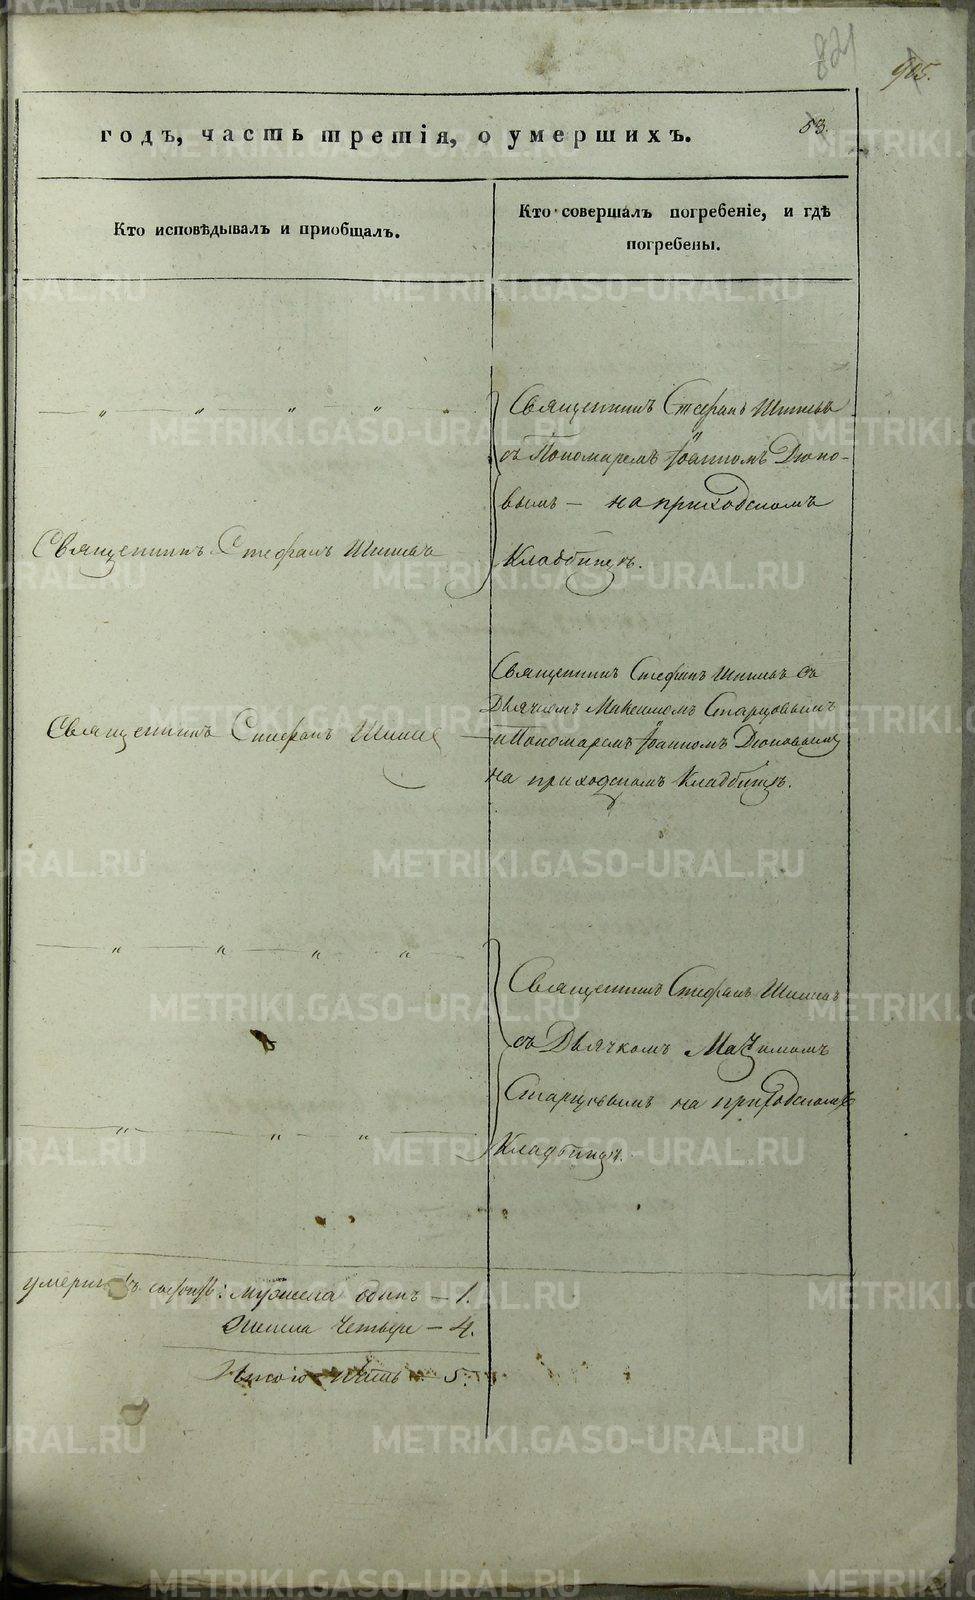 821
905.
годъ, часть третія, о умершихъ.
53.
Кто исповѣдывалъ и приобщалъ.
Кто совершалъ погребеніе, и гдѣ
погребены.
Священникъ Стефанъ
съ Пономаремъ Іоанномъ Дюко-
вымъ — на приходскомъ
Кладбищѣ.
Священникъ Стефанъ
Священникъ Стефанъ съ
Дьячкомъ Максимомъ Старцовымъ
и Пономаремъ Іоанномъ Дюковымъ
на приходскомъ Кладбищѣ.
Священникъ Стефанъ
Священникъ Стефанъ
съ Дьячкомъ
Старцовымъ на приходскомъ
Кладбищѣ.
мужеска одинъ — 1.
Женска Четыре — 4.
Итого пять — 5.
METRIKI.GASO-URAL.RU